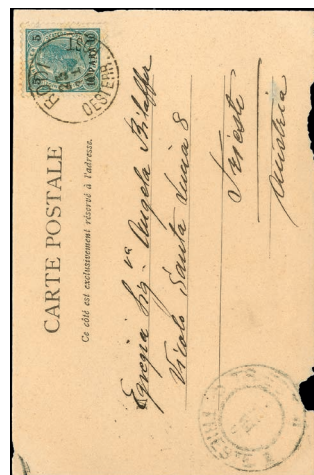 CARTE POSTALE
Ce côté est exclusivement réservé à l'adresse.
Egregia Sig.na Angela
Vicolo Santa Lucia 8
Trieste
Austria
5
10 PARA 10
RODI
OESTERR.